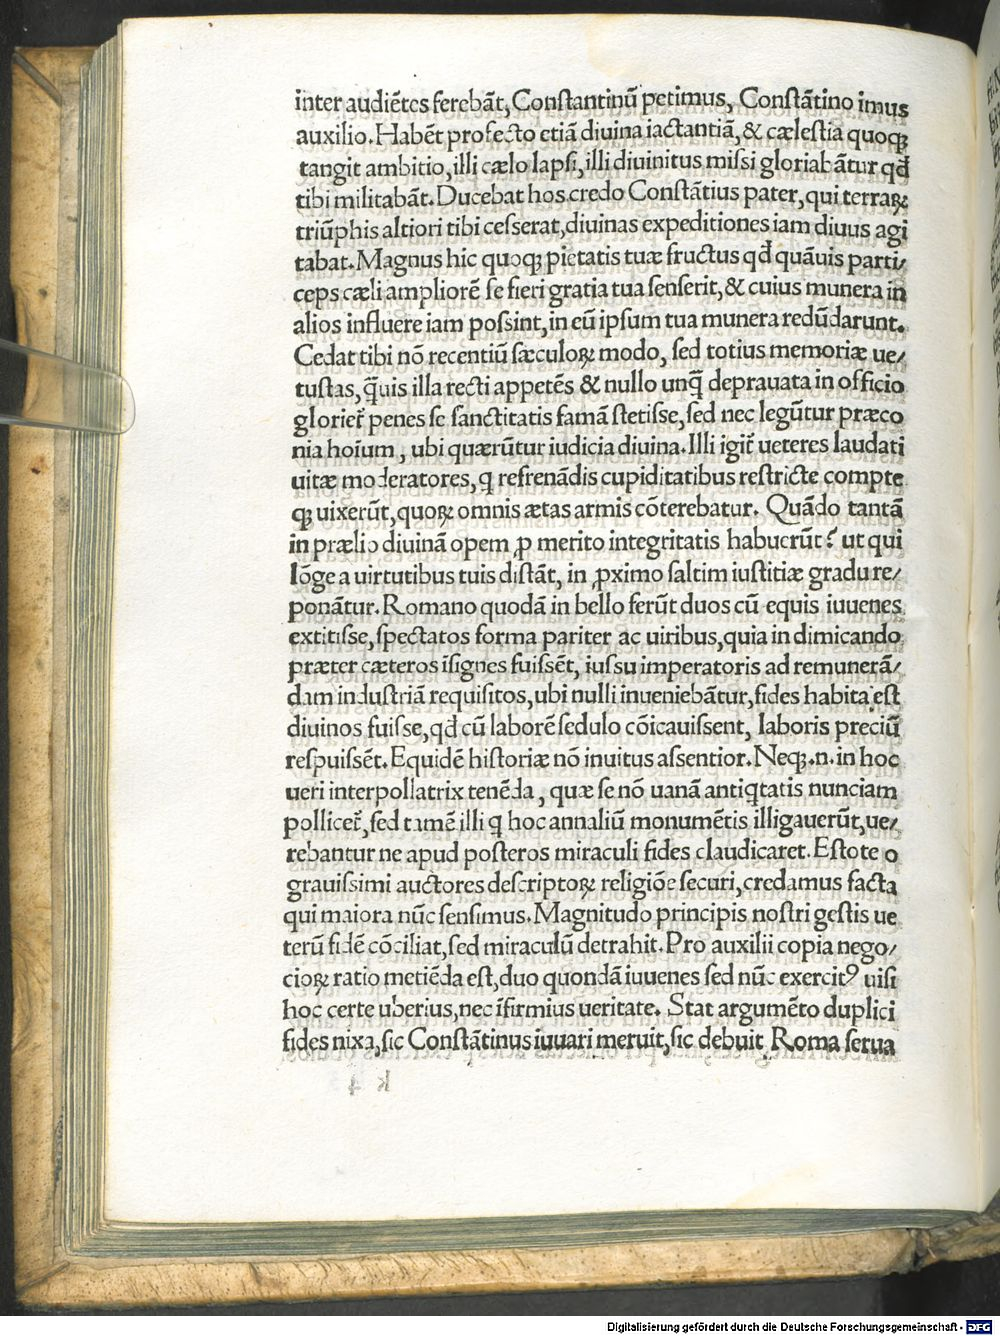 inter audiẽtes ferebãt, Constantinũ petimus, Constãtino imus
auxilio. Habẽt profecto etiã diuina iactantiã, & cælestia quoqꝫ
tangit ambitio, illi cælo lapsi, illi diuinitus missi gloriabãtur qđ
tibi militabãt. Ducebat hos credo Constãtius pater, qui terraꝝ
triũphis altiori tibi cesserat, diuinas expeditiones iam diuus agi
tabat. Magnus hic quoqꝫ pietatis tuæ fructus qđ quãuis parti/
ceps cæli ampliorẽ se fieri gratia tua senserit, & cuius munera in
alios influere iam possint, in eũ ipsum tua munera redũdarunt.
Cedat tibi nõ recentiũ sæculoꝝ modo, sed totius memoriæ ue/
tustas, q̃uis illa recti appetẽs & nullo unq̃ deprauata in officio
glorieť penes se sanctitatis famã stetisse, sed nec legũtur præco
nia hoĩum, ubi quærũtur iudicia diuina. Illi igiť ueteres laudati
uitæ moderatores, q refrenãdis cupiditatibus restricte compte
qꝫ uixerũt, quoꝝ omnis ætas armis cõterebatur. Quãdo tantã
in prælio diuinã opem ꝓ merito integritatis habuerũt? ut qui
lõge a uirtutibus tuis distãt, in ꝓximo saltim iustitiæ gradu re/
ponãtur. Romano quodã in bello ferũt duos cũ equis iuuenes
extitisse, spectatos forma pariter ac uiribus, quia in dimicando
præter cæteros ĩsignes fuissẽt, iussu imperatoris ad remunerã/
dam industriã requisitos, ubi nulli inueniebãtur, fides habita est
diuinos fuisse, qđ cũ laborẽ sedulo cõicauissent, laboris preciũ
respuissẽt. Equidẽ historiæ nõ inuitus assentior. Neqꝫ .n. in hoc
ueri interpollatrix tenẽda, quæ se nõ uanã antiqtatis nunciam
polliceť, sed tamẽ illi q hoc annaliũ monumẽtis illigauerũt, ue/
rebantur ne apud posteros miraculi fides claudicaret. Estote o
grauissimi auctores descriptoꝝ religiõe securi, credamus facta
qui maiora nũc sensimus. Magnitudo principis nostri gestis ue
terũ fidẽ cõciliat, sed miraculũ detrahit. Pro auxilii copia nego/
cioꝝ ratio metiẽda est, duo quondã iuuenes sed nũc exercitꝰ uisi
hoc certe uberius, nec ĩfirmius ueritate. Stat argumẽto duplici
fides nixa, sic Constãtinus iuuari meruit, sic debuit Roma serua
Digitalisierung gefördert durch die Deutsche Forschungsgemeinschaft - DFG